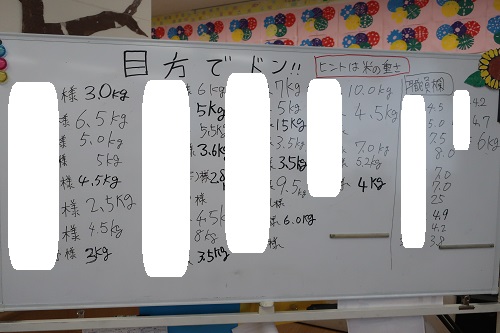 目方でドン!!
ヒントは米の重さ
職員欄
様 3.0kg
様 6.5kg
様 5.0kg
様 5kg
様 4.5kg
様 2.5kg
様 4.5kg
様 3kg
様 6kg
5kg
5.5kg
3.6kg
様
4.5
8kg
3.5kg
7kg
5kg
15kg
3.5kg
3.5kg
9.5kg
様 6.0kg
様
10.0kg
4.5kg
7.0kg
5.2kg
4kg
4.5
5.0
7.5
8.0
7.0
7.0
25
4.9
4.2
3.8
4.2
4.7
6kg